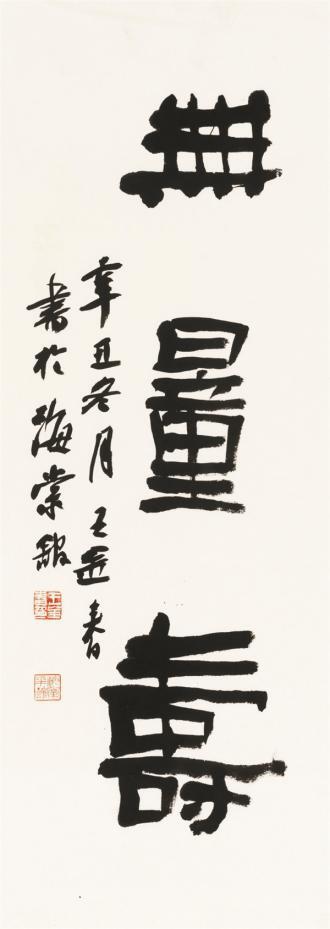 無量壽
辛丑冬月 王金春
書於海棠館